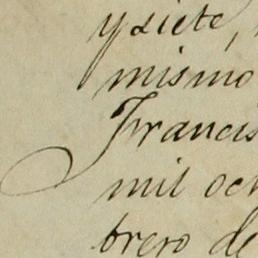 y siete,
mismo
Francis
mil och
brero de